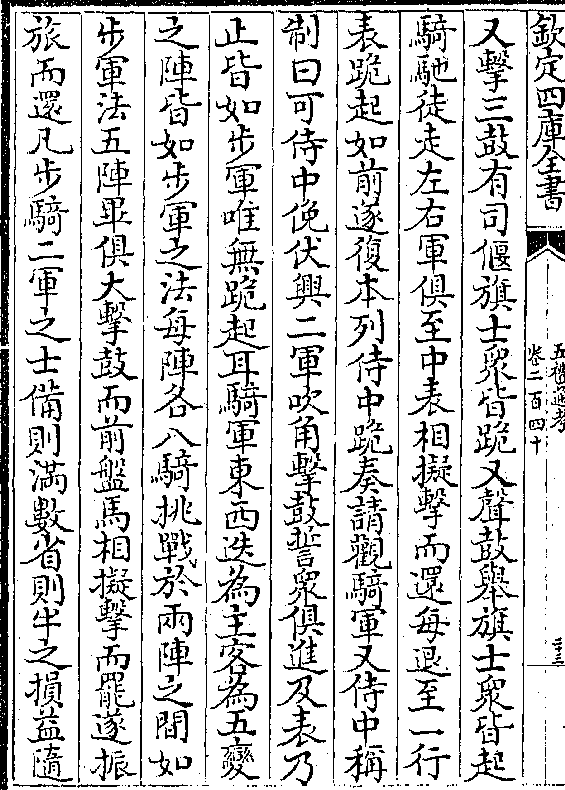 欽定四庫全書
五禮通考
卷二百四十
二十三
又擊三鼓有司偃旗士衆皆跪又聲鼓舉旗士衆皆起
騎馳徒走左右軍俱至中表相擬擊而還每退至一行
表跪起如前遂復本列侍中跪奏請觀騎軍又侍中稱
制曰可侍中俛伏興二軍吹角擊鼓誓衆俱進及表乃
止皆如步軍唯無跪起耳騎軍東西迭為主客為五變
之陣皆如步軍之法每陣各八騎挑戰於兩陣之間如
步軍法五陣畢俱大擊鼓而前盤馬相擬擊而罷遂振
旅而還凡步騎二軍之士備則滿數省則半之損益隨